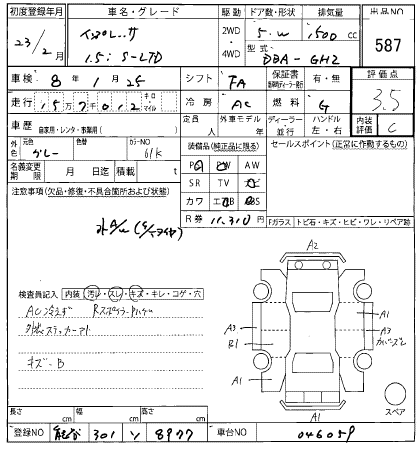 初度登録年月 車名・グレード 駆動 ドア数・形状 排気量 出品NO
23/2月 インプレッサ 2WD・4WD 5・W 1500cc 587
1.5i S-LTD 型式 DBA-GH2
車検 8年1月25 シフト FA 保証書 有・無 評価点
走行 157012 キロ マイル 冷房 AC 燃料 G 3.5
車歴 自家用・レンタ・事業用( ) 定員 人 外車モデル 年 ディーラー 並行 ハンドル 左・右 内装評価 C
外色 元色 グレー 色替 カラーNO 61K 装備品(純正品に限る) セールスポイント(正常に作動するもの)
名義変更期限 月 日 石数 積載 t PS PW AW
注意事項(欠品・修復・不具合箇所および状態) SR TV ナビ
カワ エアB ABS
R券 11,310円 Fガラス トビ石・キズ・ヒビ・ワレ・リペア跡
A2
検査員記入 内装 汚レ・スレ・キズ・キレ・コゲ・穴
AC冷えず
A3 A1
外装ステッカーアト A3
R1
キズ-B
A1
スペア
長さ cm 幅 cm 高さ cm A1
登録NO 301 ソ 8977 車台NO 046059